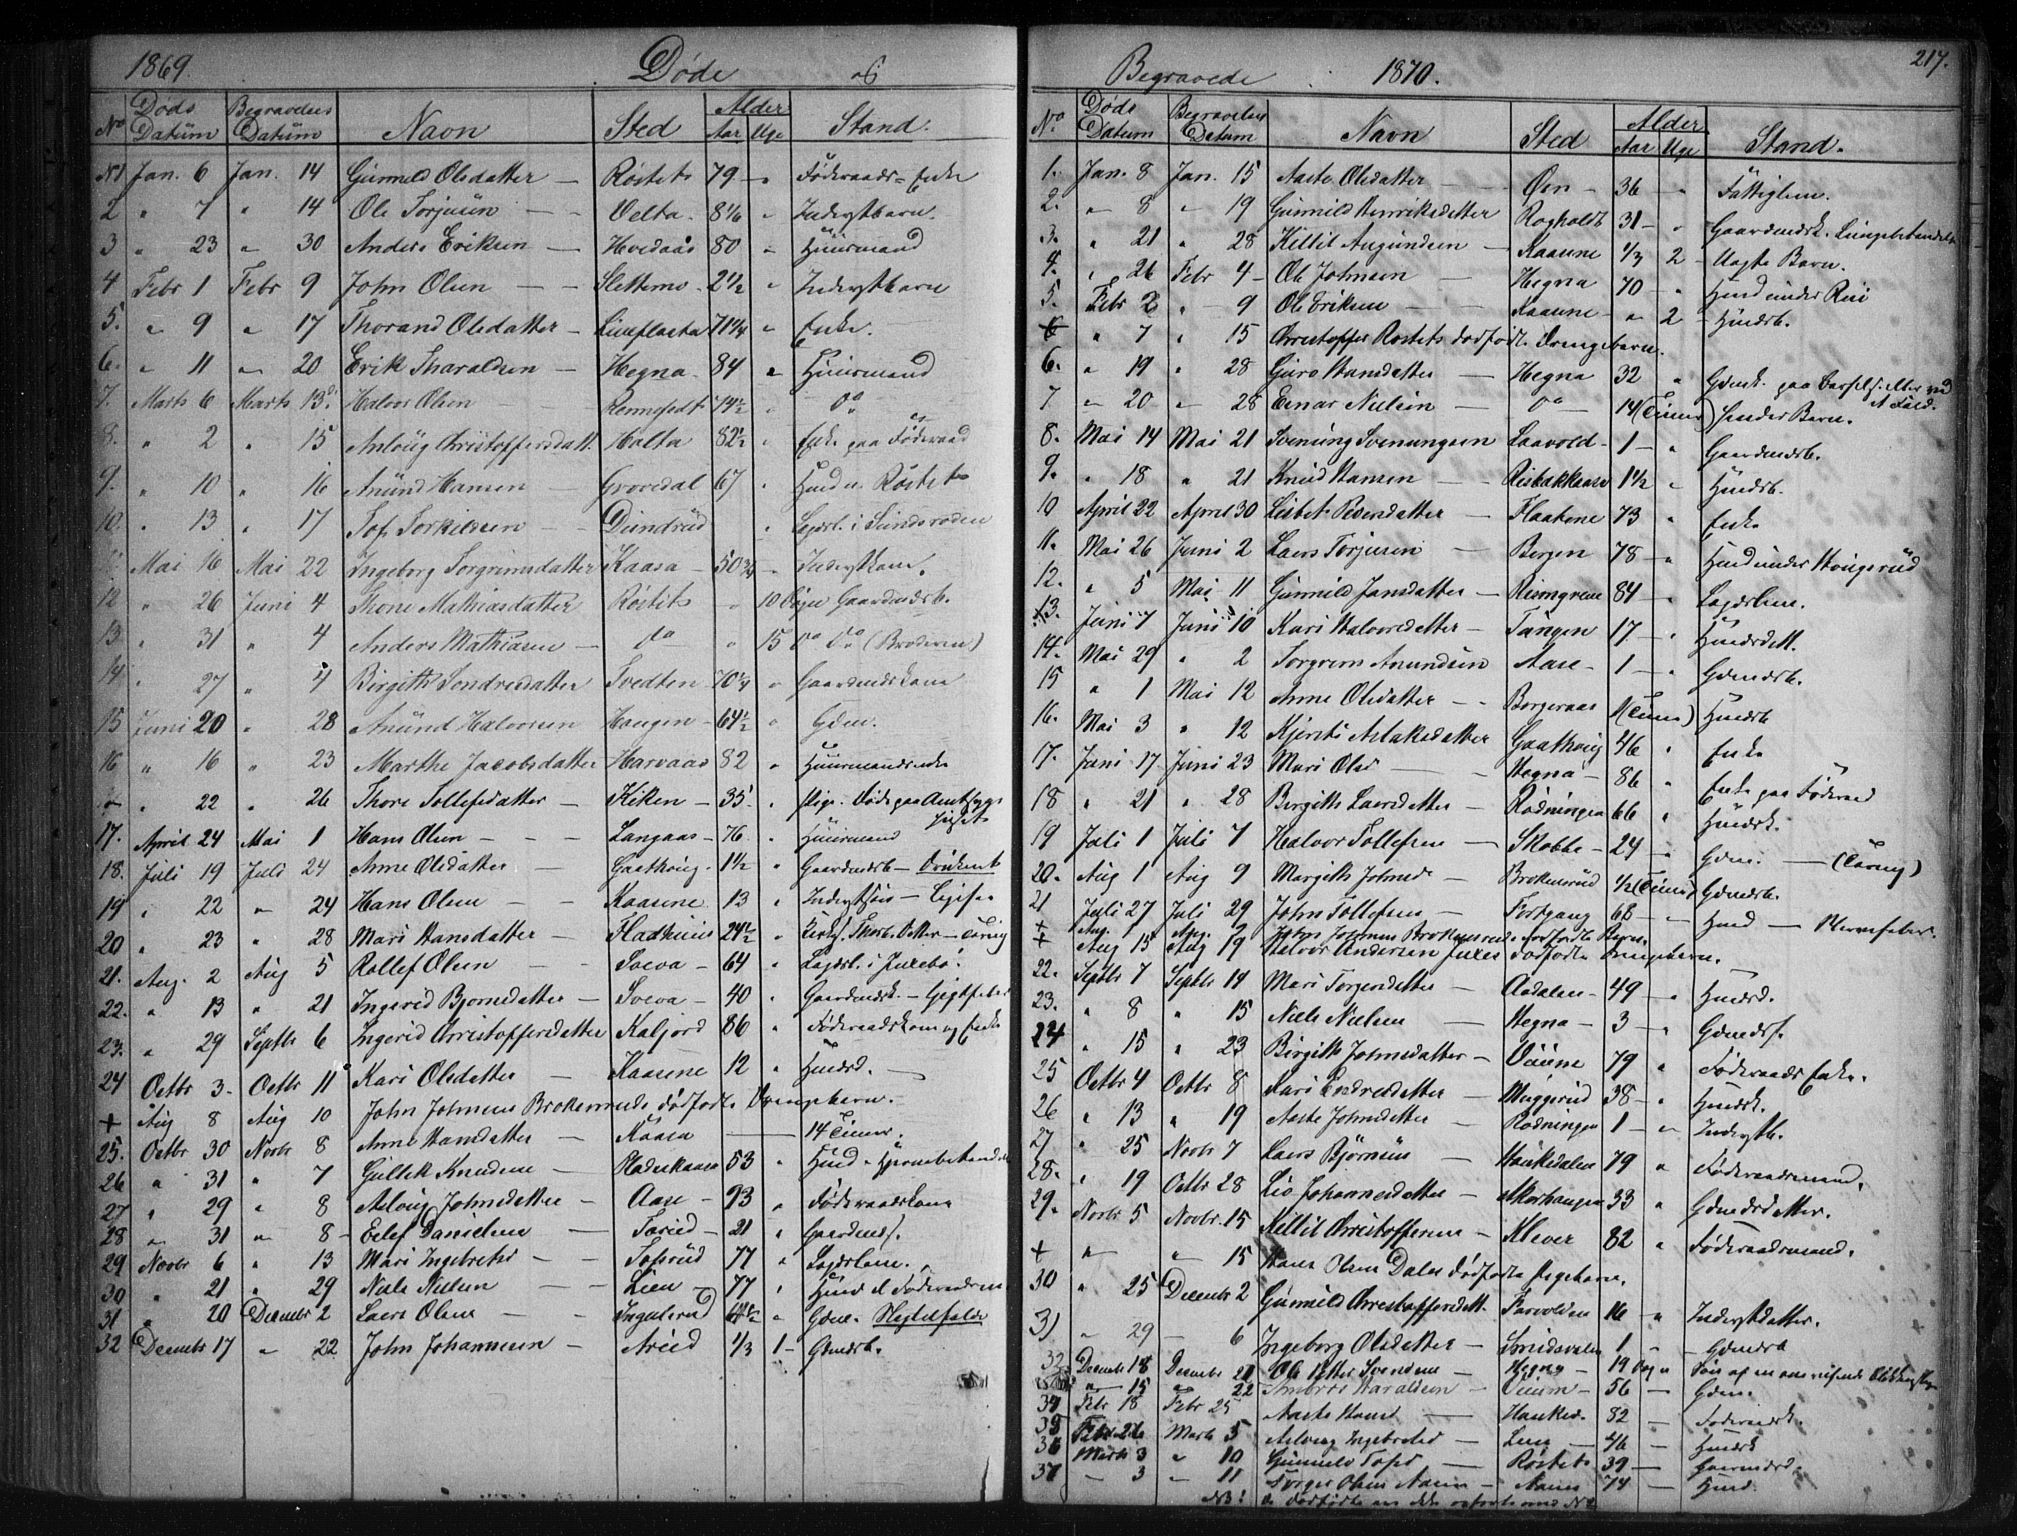 1869. Døde &
No Døds Datum Begravelses Datum Navn Sted Alder Aar Uge Stand.
N1 Jan. 6 Jan. 14 Gunnild Olsdatter — Røstet 79 — „ Føderaads-Enke
2 „ 7 „ 14 Ole Torjusen — Velta 8 1/6 „ Inderstbarn.
3 „ 23 „ 30 Anders Eriksen — Hvedaas 80 „ Huusmand
4 Febr 1 Febr 9 John Olsen — Slettemo 2 1/2 „ Inderstbarn
5. „ 9 „ 17 Thorand Olsdatter — 71 1/4 „ Enke.
6. „ 11 „ 20 Erik Tharaldsen — Hegna 84 „ Huusmand
7. Marts 6 Marts 13 Halvor Olsen — 74 1/2 „ Do
8. „ 2 „ 15 Anlaug Christoffersdatt. Holta 82 1/2 „ Enke paa Føderaad
9. „ 10 „ 16 Anund Hansen — Grovedal 67 „ Husmd u. Røstet
10. „ 13 „ 17 Tof Torkildsen — Dundrud „ Lægdsl. i
11 Mai 16 Mai 22 Ingeborg Torgrimsdatter Kaasa — 50 3/4 „ Inderstkone.
12 „ 26 Juni 4 Thone Mathiasdatter Røstet „ 10 Døgn Gaardmdsb.
13 „ 31 „ 4 Anders Mathiasen — Do „ 15 Do Do (Broderen)
14 „ 27 „ 4 Birgith Sondresdatter Tvedten 70 1/4 „ Gaardmdskone
15 Juni 20 „ 28 Anund Halvorsen Haugen — 64 1/2 „ Gdm.
16 „ 16 „ 23 Marthe Jacobsdatter Harvaas 82 „ Huusmandsenke
+ „ 22 „ 26 Thore Tollefsdatter — Kiken — 35 „ Pige. Døde paa Amtssygehuset
17. April 24 Mai 1 Hans Olsen — Langaas — 76 „ Huusmand
18. Juli 19 Juli 24 Anne Olsdatter — Gaathoug — 1 1/2 „ Gaardmdsb — Druknet
19 „ 22 „ 24 Hans Olsen — Kaasene 13 „ Inderstsøn — Ligesaa
20 „ 23 „ 28 Mari Hansdatter — Fladhuus 24 1/2 „ — Tæring
21. Aug. 2 Aug 5 Rollef Olsen — Sveva — 64 „ Lægdsl. i
22. „ 13 „ 21 Ingerid Bjornsdatter — Sveva — 40 „ Gaardmdsk. — Gigtfeber
23. „ 29 Septbr 6 Ingerid Christoffersdatter Kaljord 86 „ Føderaadskone og Enke
24 Octbr 3 — Octbr 11 Kari Olsdatter — Kaasene 12 „ Husmd. —
+ Aug 8 Aug 10 John Johnsens Brokerruds dødfødte Drengebarn.
25. Octbr 30 Novbr 8 Anne Hansdatter — Kaasa — 14 Timer.
26 „ 31 „ 7 Gullek Knudsen — 53 „ Husmd —
27 „ 29 „ 8 Aslaug Johnsdatter — Aase — 93 „ Føderaadskone
28 „ 31 „ 8 — Eilef Danielsen — 21 „ Gaardmdss.
29 Novbr 6 „ 13 Mari Ingebretsd — Tofsrud 77 „ Lægdslem.
30 „ 21 „ 29 Niels Nielsen — Lien — 77 „ Husmd & Føderaadsm.
31 „ 20 Decembr 2 Lars Olsen — Ingulsrud 64 1/2 „ Gdm. —
32 Decembr 17 „ 22 John Johannesen — 1/3 1 — Gdmdsb.
Begravede 1870. 217.
No. Døds Datum Begravelses Datum Navn Sted Alder Aar Uge Stand.
1. Jan. 8 Jan. 15 Aaste Olsdatter — Øen — 36 — „ Fattiglem.
2. „ 8 „ 19 Gunnild Henriksdatter Rogholdt 31 — „ Gaardmdsk. Lungebetændelse
3. „ 21 „ 28 Kittil Augundsen — Kaasene 1/3 2 — Uægte Barn.
4. „ 26 Febr 4 — Ole Johnsen — Hegna 70 — „ Husmd under Rui
5. Febr 2 „ 9 Ole Eriksen — Kaasene — „ 2 — Husmdsb.
+ „ 7 „ 15 Christoffer Røstets dødfødte Drengebarn.
6. „ 19 „ 28 Guro Hansdatter — Hegna 32 „ Gdmsk. paa Barselseng
7 „ 20 „ 28 Einar Nielsen — Do 14 (Timer) Barn.
8. Mai 14 Mai 21 Svenung Svenungsen Laavold — 1 — „ Gaardmdsb.
9. „ 18 „ 21 Knud Hansen — 1 1/2 „ Husmdsb.
10 April 22 April 30 Lisbet Pedersdatter — Flaatene 73 „ Enke
11. Mai 26 Juni 2 Lars Torjusen — Bergen 78 — „ Husmd under Haugsrud
12. „ 5 Mai 11 Gunnild Jansdatter — Rismyrene 84 — „ Lægdslem.
13. Juni 7 Juni 10 Kari Halvorsdatter — Tangen 17 — „ Husmdsdatt.
14. Mai 29 „ 2 Torgrim Amundsen — Aase — 1 — „ Gdmdsb.
15 „ 1 Mai 12 Anne Olsdatter — Borgeraas 1 (Time) Husmdsb
16. Mai 3 „ 12 Kjersti Aslaksdatter Gaathoug 46 „ Enke
17. Juni 17 Juni 23 Mari Olsd — Hegna — 86 „ Enke paa Føderaad
18 „ 21 „ 28 Birgith Larsdatter — Rødningen 66 „ Husmdsk.
19 Juli 1 Juli 7 Halvor Tollefsen — Skobba — 24 — „ Gdm. — (Tæring)
20. Aug 1 Aug 9 Margith Johnsd — Brokerrud 1/2 (Time) Gdmdsb.
21 Juli 27 Juli 29 John Tollefsen — Fortgang 68 — „ Husmd — Nervefeber.
+ Aug. 7 Aug. 9 John Johnsens Brokerruds dødfødte Barn.
+ Aug 15 Aug 19 Halvor Andersen Juvets dødfødte Drengebarn.
22. Septbr 7 Septbr 14 Mari Torgersdatter — Aadalen — 49 — „ Husmd.
23. „ 8 „ 15 Niels Nielsen — Hegna — 3 — „ Gdmdss.
24 „ 15 „ 23 Birgith Johnsdatter — 79 „ Føderaads Enke.
25 Octbr 4 Octbr 8 Kari Endresdatter — Muggerud 38 — „ Husmdsk.
26 „ 13 „ 19 Aaste Johnsdatter — Rødningen 1 — „ Inderstb.
27 „ 25 Novbr 7 Lars Bjørnsen — Haukedalen 79 „ Føderaadsmand.
28. „ 19 Octbr 28 Liv Johannesdatter — 33 „ Gdmdsdatter.
29. Novbr 5 Novbr. 15 Kittil Christoffersen — Klever 82 „ Føderaadsmand.
+ „ „ 15 Hans Olsens Dales dødfødte Pigebarn.
30 „ 25 Decembr 2 Gunnild Christoffersdatt. Farvolden 16 „ Inderstdatter.
31 „ 29 — „ 6 Ingeborg Olsdatter — 1 „ Gdmdsb
32 Decembr 18 Decembr 21 Ole Petter Svendsen — Hegna — 19 Dage Søn af
„ 15 „ 22 Haraldsen — 56 — Gdm.
34 Febr 18 Febr 25 Aaste Hansd — 82 — Føderaadsk.
35 Febr 26 Marts 5 Aslaug Ingebretsd — Lien — 46 — Husmdsk
36 Marts 3 „ 10 Gunnild Tofsd — Røstet 39 — Gaardmdsk.
37 „ 3 „ 11 Torger Olsen Aanes — Aanes 74 — Husmd
NB! De dødfødte ere ikke opførte med No